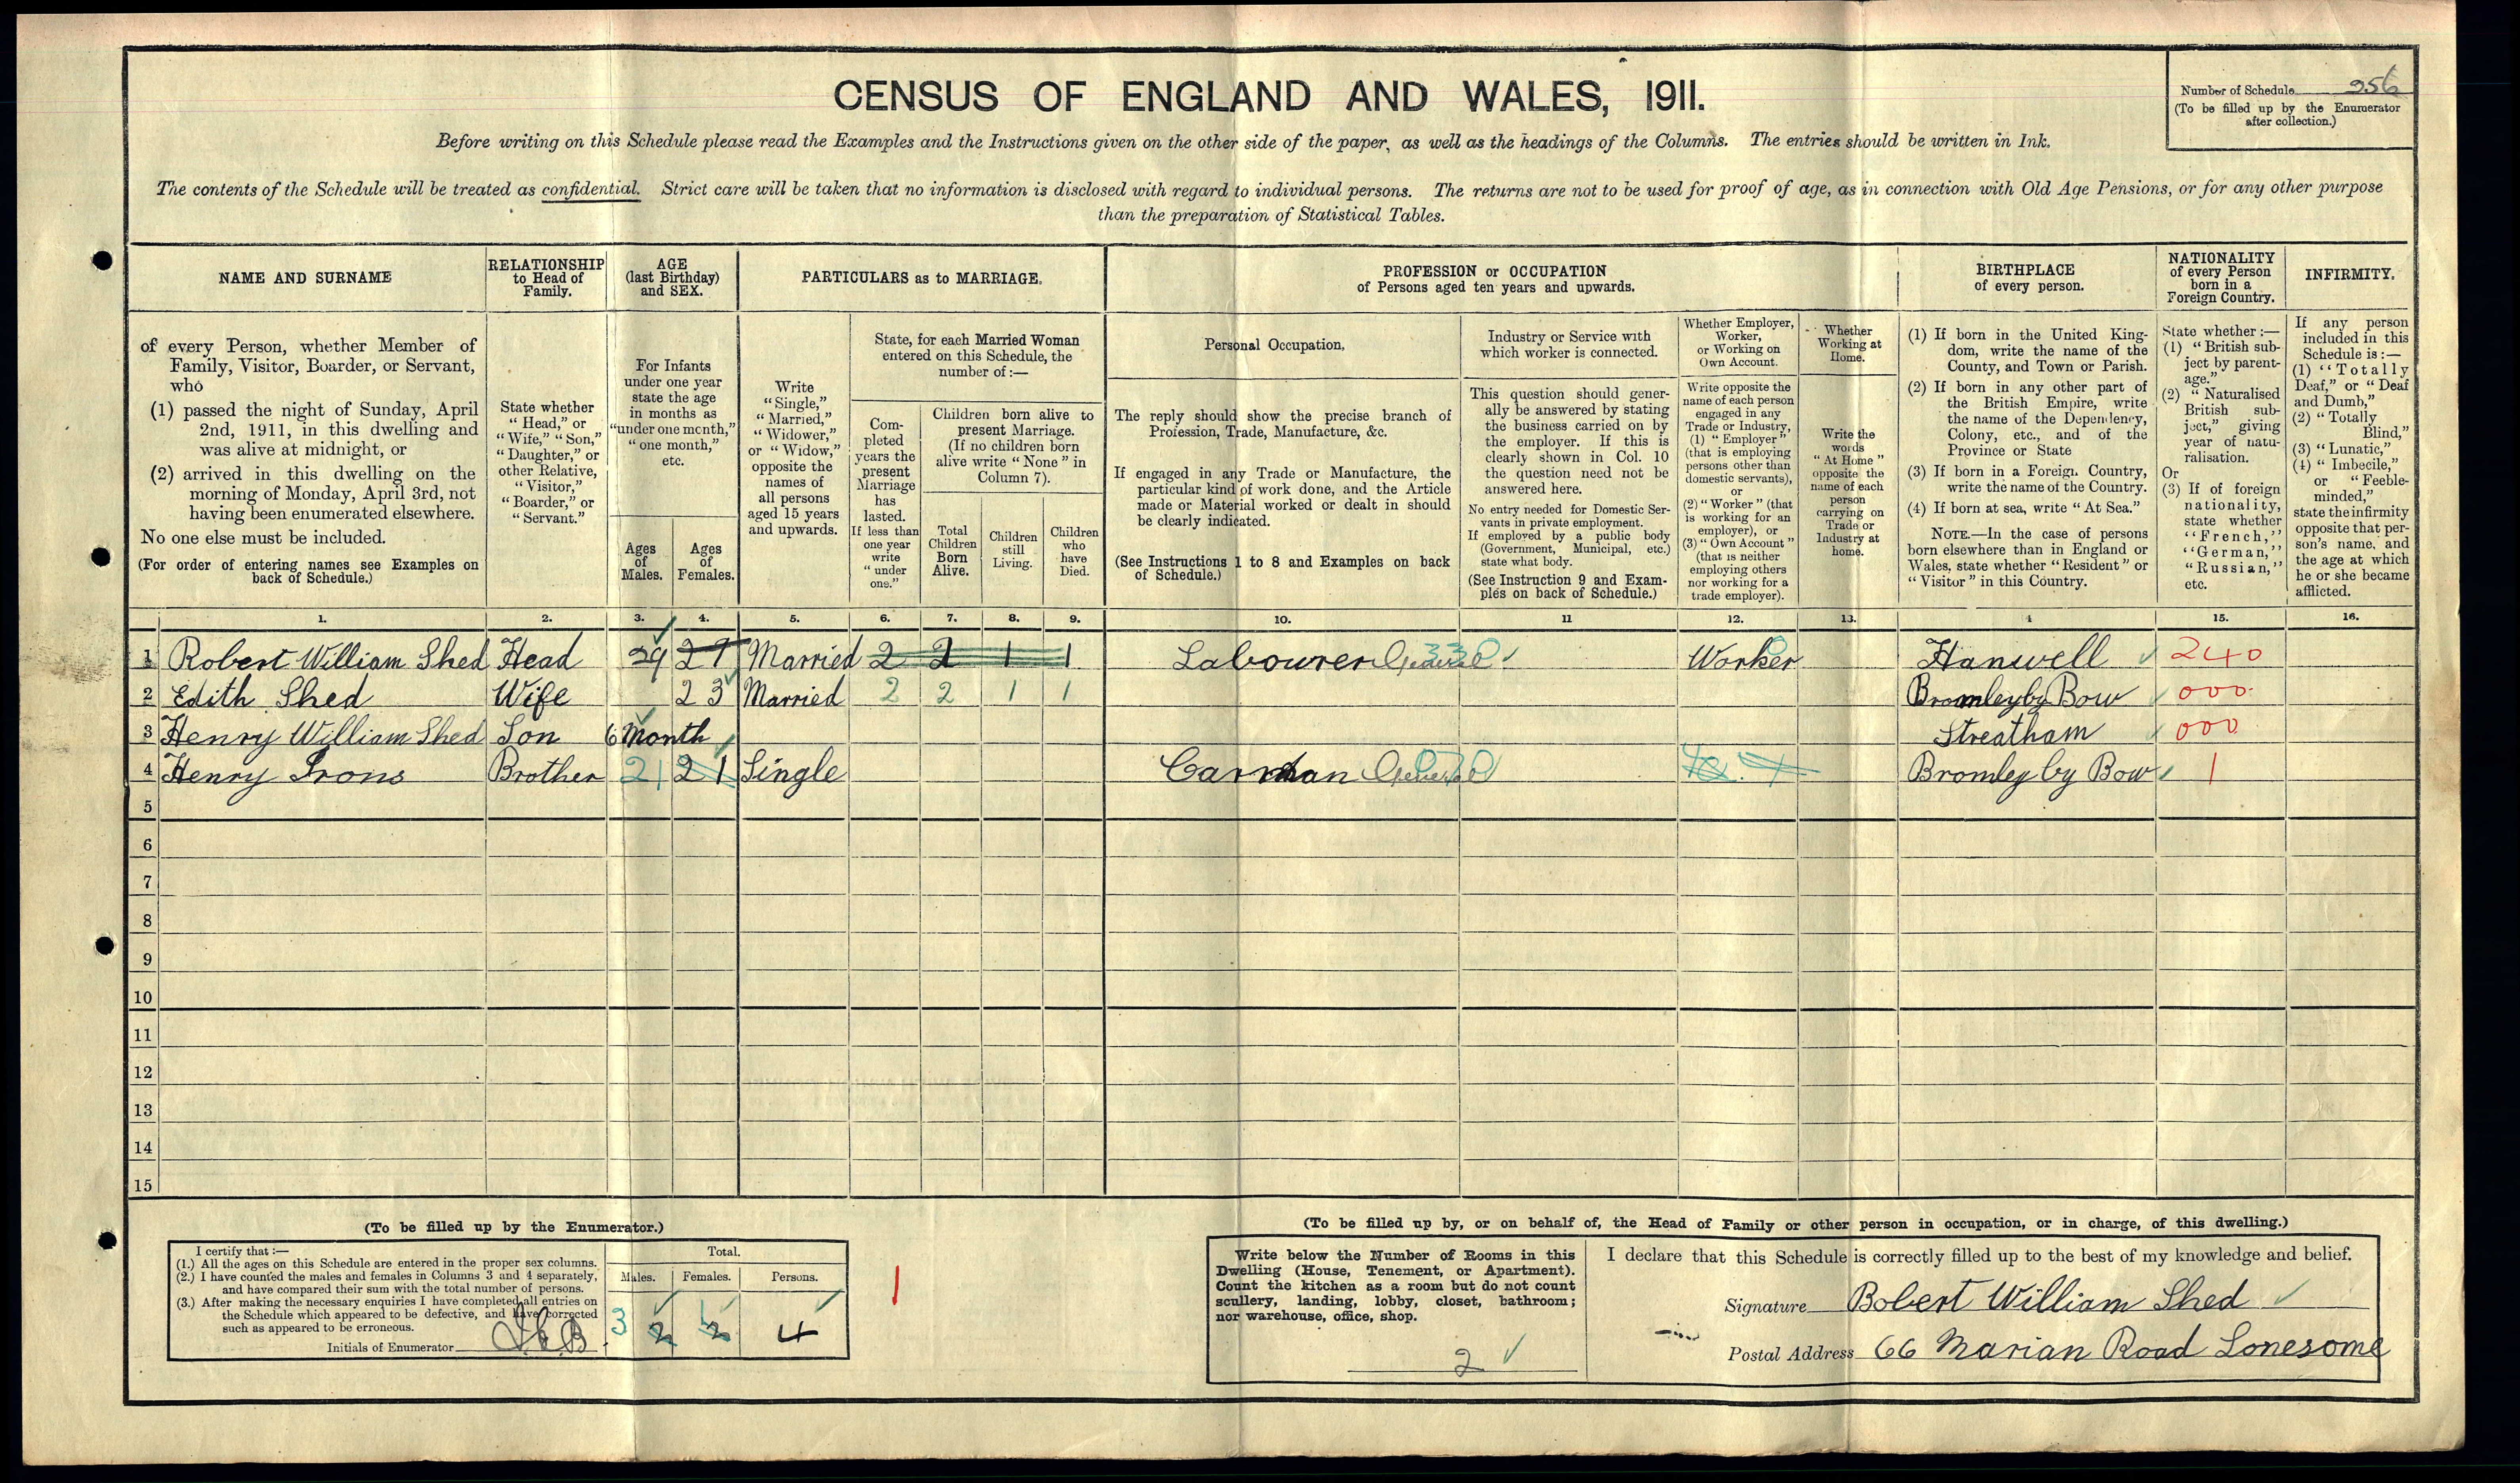 CENSUS OF ENGLAND AND WALES, 1911.
Number of Schedule 256
(To be filled up by the Enumerator
after collection.)
Before writing on this Schedule please read the Examples and the Instructions given on the other side of the paper, as well as the headings of the Columns. The entries should be written in Ink.
The contents of the Schedule will be treated as confidential. Strict care will be taken that no information is disclosed with regard to individual persons. The returns are not to be used for proof of age, as in connection with Old Age Pensions, or for any other purpose
than the preparation of Statistical Tables.
NAME AND SURNAME
of every Person, whether Member of
Family, Visitor, Boarder, or Servant,
who
(1) passed the night of Sunday, April
2nd, 1911, in this dwelling and
was alive at midnight, or
(2) arrived in this dwelling on the
morning of Monday, April 3rd, not
having been enumerated elsewhere.
No one else must be included.
(For order of entering names see Examples on
back of Schedule.)
RELATIONSHIP
to Head of
Family.
State whether
"Head," or
"Wife," "Son,"
"Daughter," or
other Relative,
"Visitor,"
"Boarder," or
"Servant."
AGE
(last Birthday)
and SEX.
For Infants
under one year
state the age
in months as
"under one month,"
"one month,"
etc.
Ages
of
Males.
Ages
of
Females.
PARTICULARS as to MARRIAGE.
Write
"Single,"
"Married,"
"Widower,"
or "Widow,"
opposite the
names of
all persons
aged 15 years
and upwards.
State, for each Married Woman
entered on this Schedule, the
number of:—
Com-
pleted
years the
present
Marriage
has
lasted.
If less than
one year
write
"under
one."
Children born alive to
present Marriage.
(If no children born
alive write "None" in
Column 7).
Total
Children
Born
Alive.
Children
still
Living.
Children
who
have
Died.
PROFESSION or OCCUPATION
of Persons aged ten years and upwards.
Personal Occupation.
The reply should show the precise branch of
Profession, Trade, Manufacture, &c.
If engaged in any Trade or Manufacture, the
particular kind of work done, and the Article
made or Material worked or dealt in should
be clearly indicated.
(See Instructions 1 to 8 and Examples on back
of Schedule.)
Industry or Service with
which worker is connected.
This question should gener-
ally be answered by stating
the business carried on by
the employer. If this is
clearly shown in Col. 10
the question need not be
answered here.
No entry needed for Domestic Ser-
vants in private employment.
If employed by a public body
(Government, Municipal, etc.)
state what body.
(See Instruction 9 and Exam-
ples on back of Schedule.)
Whether Employer,
Worker,
or Working on
Own Account.
Write opposite the
name of each person
engaged in any
Trade or Industry,
(1) "Employer"
(that is employing
persons other than
domestic servants),
or
(2) "Worker" (that
is working for an
employer), or
(3) "Own Account"
(that is neither
employing others
nor working for a
trade employer).
Whether
Working at
Home.
Write the
words
"At Home"
opposite the
name of each
person
carrying on
Trade or
Industry at
home.
BIRTHPLACE
of every person.
(1) If born in the United King-
dom, write the name of the
County, and Town or Parish.
(2) If born in any other part of
the British Empire, write
the name of the Dependency,
Colony, etc., and of the
Province or State
(3) If born in a Foreign Country,
write the name of the Country.
(4) If born at sea, write "At Sea."
NOTE.—In the case of persons
born elsewhere than in England or
Wales, state whether "Resident" or
"Visitor" in this Country.
NATIONALITY
of every Person
born in a
Foreign Country.
State whether:—
(1) "British sub-
ject by parent-
age."
(2) "Naturalised
British sub-
ject," giving
year of natu-
ralisation.
Or
(3) If of foreign
nationality,
state whether
"French,"
"German,"
"Russian,"
etc.
INFIRMITY.
If any person
included in this
Schedule is:—
(1) "Totally
Deaf," or "Deaf
and Dumb,"
(2) "Totally
Blind,"
(3) "Lunatic,"
(4) "Imbecile,"
or "Feeble-
minded,"
state the infirmity
opposite that per-
son's name, and
the age at which
he or she became
afflicted.
1. 2. 3. 4. 5. 6. 7. 8. 9. 10. 11 12. 13. 4 15. 16.
1 Robert William Shed Head 29 27 Married 2 2 1 1 Labourer General 330 Worker Hanwell 240
2 Edith Shed Wife 23 Married 2 2 1 1 Bromley by Bow 000
3 Henry William Shed Son 6 Month Streatham 000
4 Henry Irons Brother 21 21 Single Carman General Bromley by Bow 1
5
6
7
8
9
10
11
12
13
14
15
(To be filled up by the Enumerator.)
I certify that:—
(1.) All the ages on this Schedule are entered in the proper sex columns.
(2.) I have counted the males and females in Columns 3 and 4 separately,
and have compared their sum with the total number of persons.
(3.) After making the necessary enquiries I have completed all entries on
the Schedule which appeared to be defective, and have corrected
such as appeared to be erroneous.
Initials of Enumerator
Total.
Males. Females. Persons.
3 2 1 2 4
1
(To be filled up by, or on behalf of, the Head of Family or other person in occupation, or in charge, of this dwelling.)
Write below the Number of Rooms in this
Dwelling (House, Tenement, or Apartment).
Count the kitchen as a room but do not count
scullery, landing, lobby, closet, bathroom;
nor warehouse, office, shop.
2
I declare that this Schedule is correctly filled up to the best of my knowledge and belief.
Signature Robert William Shed
Postal Address 66 Marian Road Lonesome